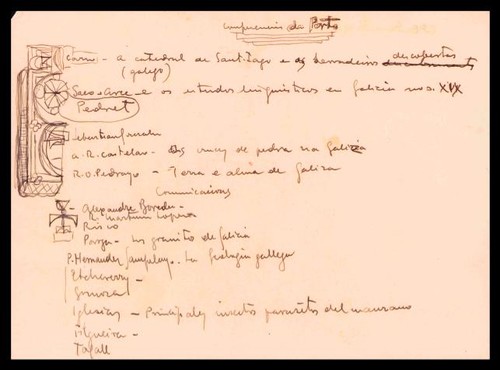 da Porto
Carro - a catedral de Santiago e os derradeiros descobertas
(galego)
Saco e Arce - e os estudos linguisticos en Galicia no s. XIX
Pedret
Sebastian González
A. R. Castelao - As cruces de pedra na Galiza
R. O. Pedrayo - Terra e alma de Galiza
Comunicacions
Alexandre Boveda -
R. Martinez Lopez
Risco
Parga - Los granito de Galicia
P. Hernandez Sampelayo. La geologia gallega
Etcheverry -
Iglesias - Principales insectos parasitos del manzano
Filgueira -
Tafall